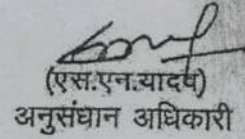 (एस.एन.यादव)
अनुसंधान अधिकारी